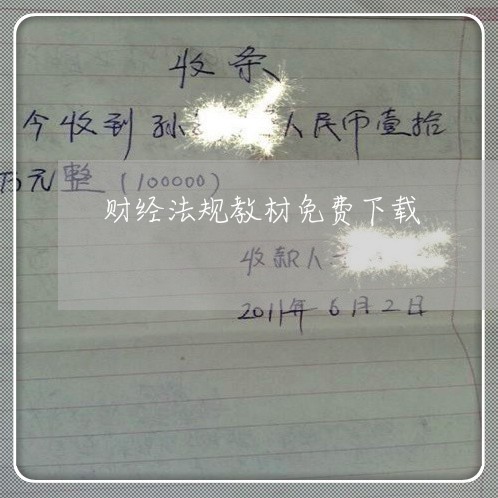 收条
今收到孙 人民币壹拾
万元整（100000）
财经法规教材免费下载
收款人
2011年6月2日